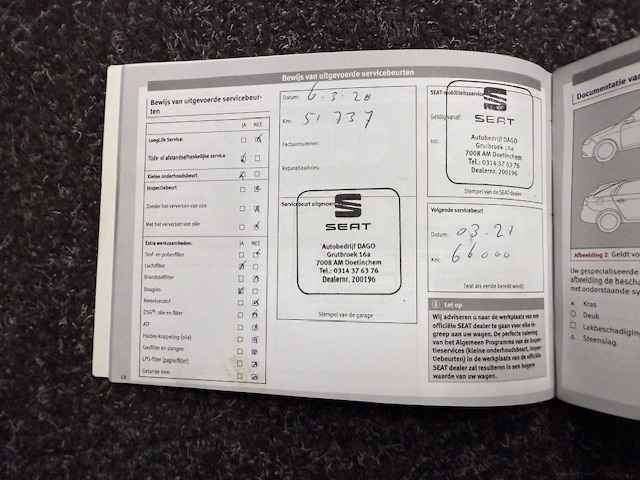 Bewijs van uitgevoerde servicebeurten
Bewijs van uitgevoerde servicebeur-
ten
JA NEE
LongLife Service
Tijds- of afstandsafhankelijke service
Kleine onderhoudsbeurt
Inspectiebeurt
Zonder het verversen van olie
Met het verversen van olie
Extra werkzaamheden: JA NEE
Stof- en pollenfilter
Luchtfilter
Brandstoffilter
Bougies
Remvloeistof
ATF
Haldex-koppeling (olie)
Gasfilter en slangen
LPG-filter (papierfilter)
Getande riem
Datum: 6.3.20
Km: 51737
Factuurnummer:
Reparatieadvies:
Servicebeurt uitgevoerd
SEAT
Autobedrijf DAGO
Grutbroek 16a
7008 AM Doetinchem
Tel.: 0314 37 63 76
Dealernr. 200196
Stempel van de garage
SEAT-mobiliteitsservice
Geldig vanaf:
tot:
SEAT
Autobedrijf DAGO
Grutbroek 16a
7008 AM Doetinchem
Tel.: 0314 37 63 76
Dealernr. 200196
Stempel van de SEAT dealer
Volgende servicebeurt
Datum: 03.21
Km: 66000
(wat als eerste bereikt wordt)
Let op
Wij adviseren u naar de werkplaats van een
officiële SEAT dealer te gaan voor elke in-
greep aan uw wagen. De perfecte naleving
van het Algemeen Programma van de Inspec-
tieservices (kleine onderhoudsbeurt, inspec-
tiebeurten) in de werkplaats van de officiële
SEAT dealer zal resulteren in een hogere
waarde van uw wagen.
Documentatie van
Afbeelding 2 Geldt vo
Uw gespecialiseerde
met onderstaande sy
Kras
Deuk
Lakbeschadiging
Steenslag.